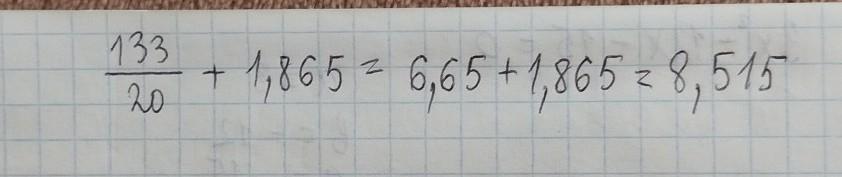 133/20 + 1,865 = 6,65 + 1,865 = 8,515